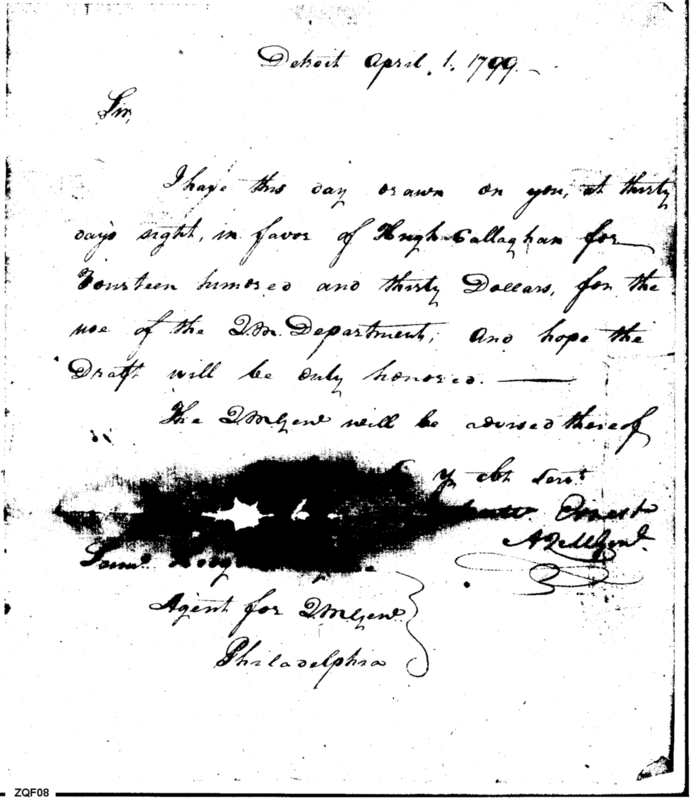 Detroit April, 1. 1799.
Sir,
I have this day drawn on you, at thirty
days sight, in favor of Hugh Callaghan for
Fourteen hundred and thirty Dollars, for the
use of the Q.M. Department; and hope the
Draft will be duly honored.
The QMGenl will be advised thereof
Yr Obt Servt
Ernest
AQMGenl.
Saml.
Agent for QMGenl
Philadelphia
ZQF08